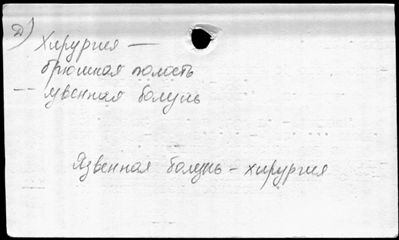 Д)
Хирургия —
брюшная полость
— язвенная болезнь
Язвенная болезнь - хирургия